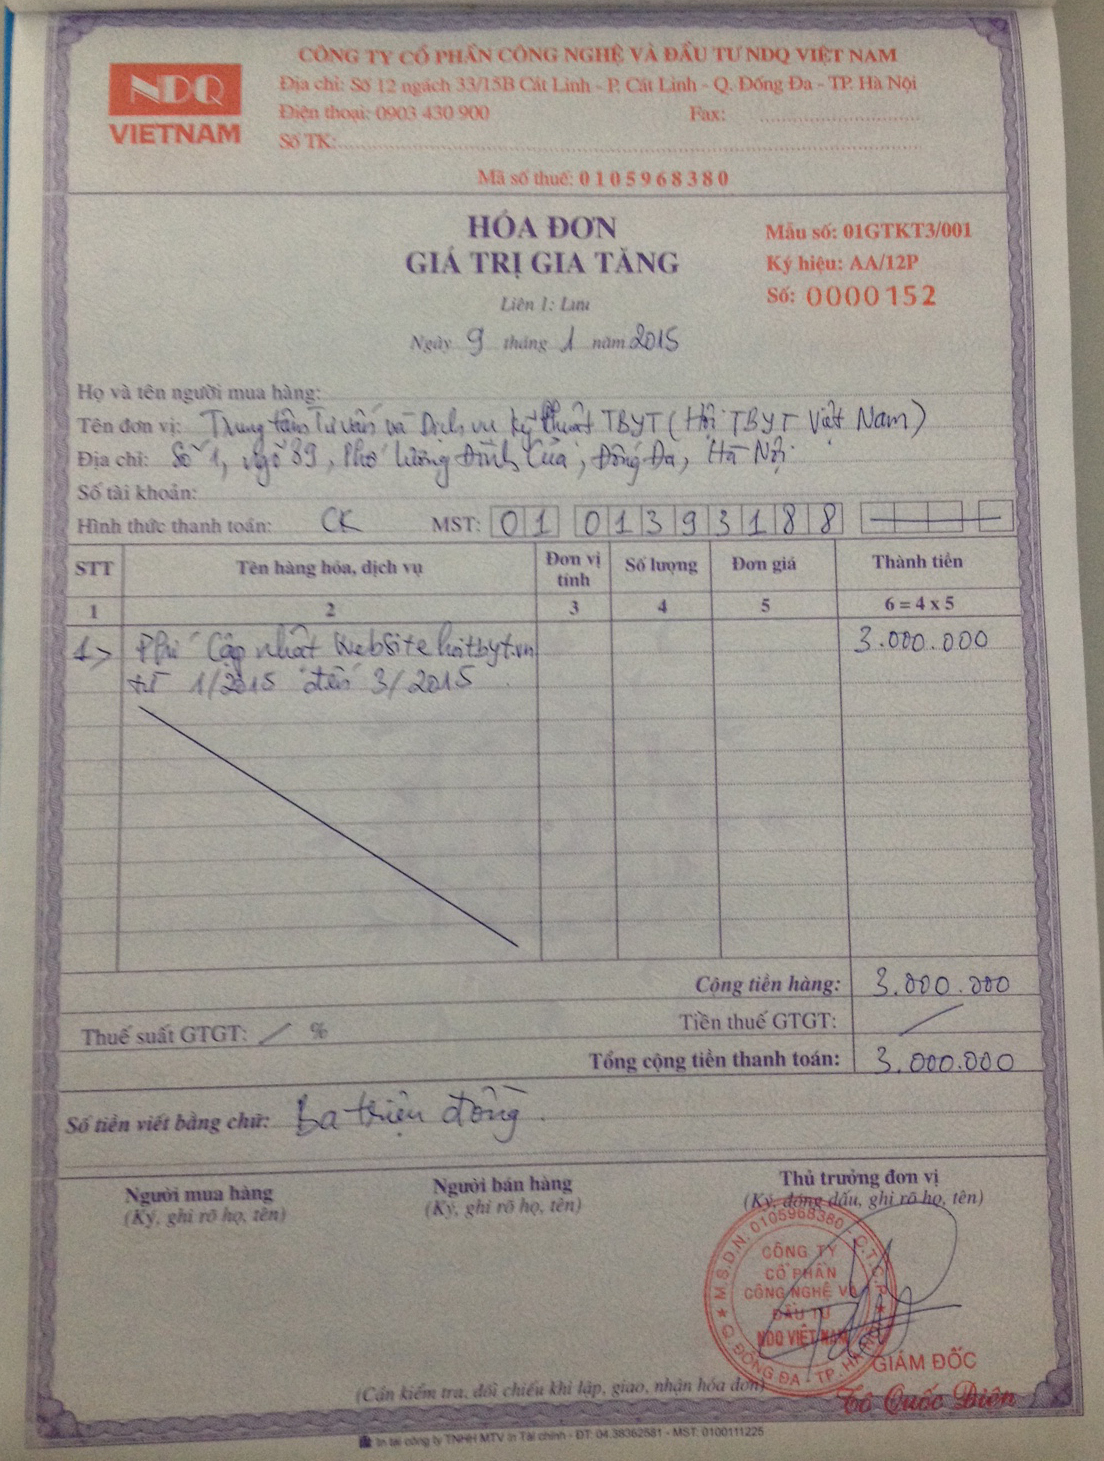 NDQ
VIETNAM
CÔNG TY CỔ PHẦN CÔNG NGHỆ VÀ ĐẦU TƯ NDQ VIỆT NAM
Địa chỉ: Số 12 ngách 33/15B Cát Linh - P. Cát Linh - Q. Đống Đa - TP. Hà Nội
Điện thoại: 0903 430 900 Fax:
Số TK:
Mã số thuế: 0105968380
HÓA ĐƠN
GIÁ TRỊ GIA TĂNG
Liên 1: Lưu
Ngày 9 tháng 1 năm 2015
Mẫu số: 01GTKT3/001
Ký hiệu: AA/12P
Số: 0000152
Họ và tên người mua hàng:
Tên đơn vị: Trung tâm Tư vấn và Dịch vụ kỹ thuật TBYT (Hội TBYT Việt Nam)
Địa chỉ: Số 1, ngõ 89, Phố Lương Đình Của, Đống Đa, Hà Nội
Số tài khoản:
Hình thức thanh toán: CK MST: 01 01393188
STT Tên hàng hóa, dịch vụ Đơn vị tính Số lượng Đơn giá Thành tiền
1 2 3 4 5 6 = 4 x 5
1> Phí cập nhật Website hoitbyt.vn 3.000.000
từ 1/2015 đến 3/2015
Cộng tiền hàng: 3.000.000
Thuế suất GTGT: / % Tiền thuế GTGT: /
Tổng cộng tiền thanh toán: 3.000.000
Số tiền viết bằng chữ: Ba triệu đồng.
Người mua hàng Người bán hàng Thủ trưởng đơn vị
(Ký, ghi rõ họ, tên) (Ký, ghi rõ họ, tên) (Ký, đóng dấu, ghi rõ họ, tên)
M.S.D.N: 0105968380 - C.T.C.P
CÔNG TY
CỔ PHẦN
CÔNG NGHỆ VÀ
ĐẦU TƯ
NDQ VIỆT NAM
Q. ĐỐNG ĐA - TP. HÀ NỘI
GIÁM ĐỐC
Tô Quốc Điên
(Cần kiểm tra, đối chiếu khi lập, giao, nhận hóa đơn)
In tại công ty TNHH MTV In Tài chính - ĐT: 04.38362581 - MST: 0100111225